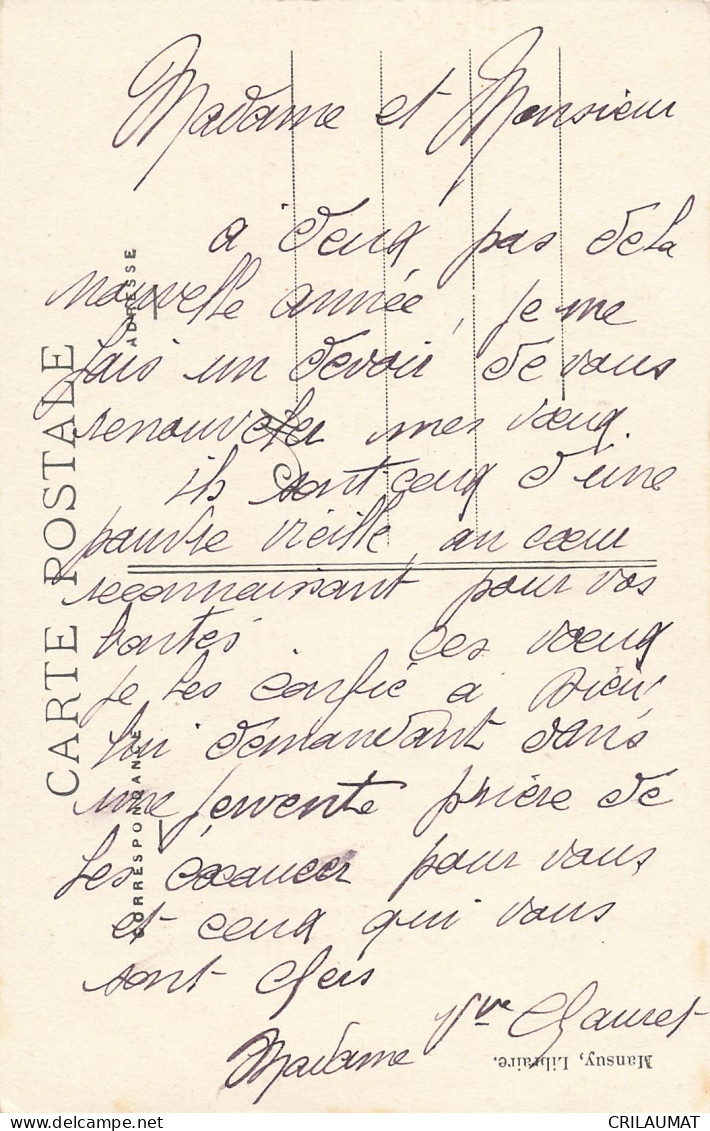 Madame et Monsieur
a deux pas de la
nouvelle année, je me
fais un devoir de vous
renouveler mes vœux
ils sont ceux d'une
pauvre vieille au cœur
reconnaissant pour vos
bontés ces vœux
je les confie à Dieu,
lui demandant dans
une fervente prière de
les exaucer pour vous
et ceux qui vous
sont chers
Vve Chauret
Madame
CARTE POSTALE
CORRESPONDANCE
ADRESSE
Mansuy, Libraire.
CRILAUMAT